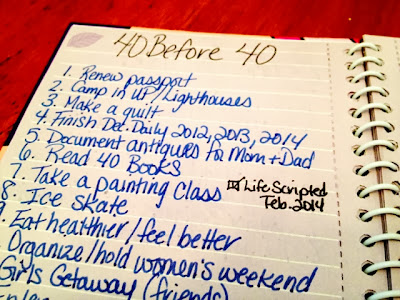 40 Before 40
1. Renew passport
2. Camp in UP/Lighthouses
3. Make a quilt
4. Finish Dec. Daily 2012, 2013, 2014
5. Document antiques for Mom + Dad
6. Read 40 Books
7. Take a painting Class ☑ Life Scripted
Feb. 2014
8. Ice skate
9. Eat healthier/feel better
Organize/hold women's weekend
Girls Getaway (friends)